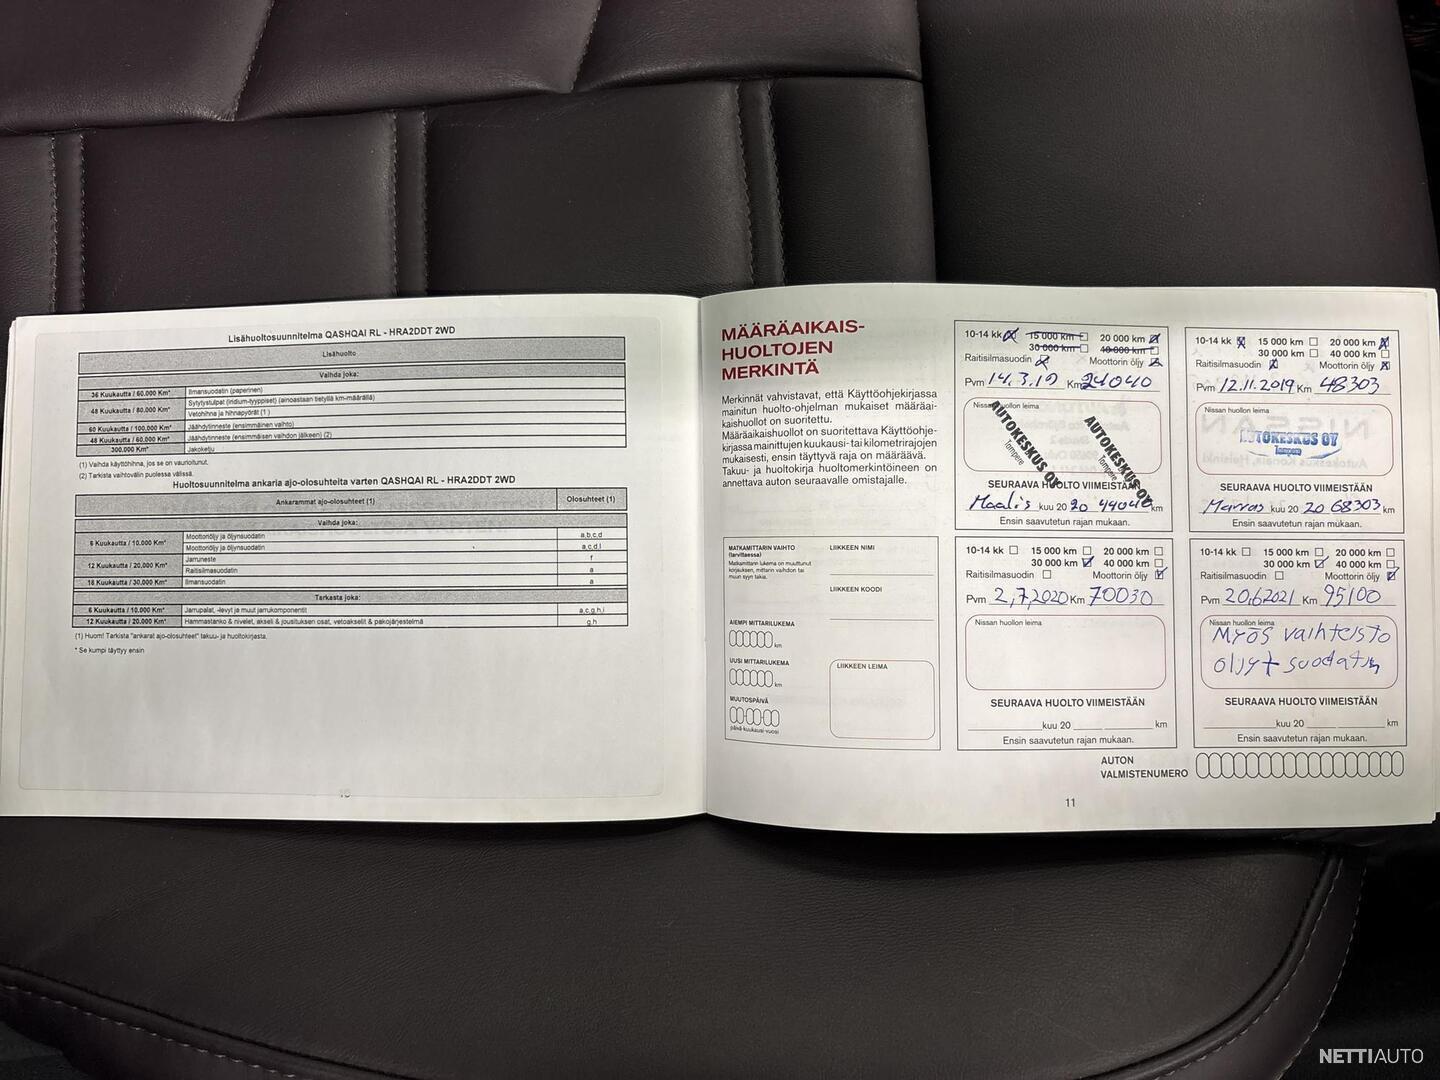 Lisähuoltosuunnitelma QASHQAI RL - HRA2DDT 2WD
Lisähuolto
Vaihda joka:
36 Kuukautta / 60.000 Km* Ilmansuodatin (paperinen)
Sytytystulpat (iridium-tyyppiset) (ainoastaan tietyllä km-määrällä)
48 Kuukautta / 80.000 Km* Vetohihna ja hihnapyörät (1 )
60 Kuukautta / 100.000 Km* Jäähdytinneste (ensimmäinen vaihto)
48 Kuukautta / 60.000 Km* Jäähdytinneste (ensimmäisen vaihdon jälkeen) (2)
300.000 Km* Jakoketju
(1) Vaihda käyttöhihna, jos se on vaurioitunut.
(2) Tarkista vaihtovälin puolessa välissä.
Huoltosuunnitelma ankaria ajo-olosuhteita varten QASHQAI RL - HRA2DDT 2WD
Ankarammat ajo-olosuhteet (1) Olosuhteet (1)
Vaihda joka:
6 Kuukautta / 10.000 Km* Moottoriöljy ja öljynsuodatin a,b,c,d
Moottoriöljy ja öljynsuodatin a,c,d,i
12 Kuukautta / 20.000 Km* Jarruneste f
Raitisilmasuodatin a
18 Kuukautta / 30.000 Km* Ilmansuodatin a
Tarkasta joka:
6 Kuukautta / 10.000 Km* Jarrupalat, -levyt ja muut jarrukomponentit a,c,g,h,i
12 Kuukautta / 20.000 Km* Hammastanko & nivelet, akseli & jousituksen osat, vetoakselit & pakojärjestelmä g,h
(1) Huom! Tarkista "ankarat ajo-olosuhteet" takuu- ja huoltokirjasta.
* Se kumpi täyttyy ensin
MÄÄRÄAIKAIS-
HUOLTOJEN
MERKINTÄ
Merkinnät vahvistavat, että Käyttöohjekirjassa
mainitun huolto-ohjelman mukaiset määräai-
kaishuollot on suoritettu.
Määräaikaishuollot on suoritettava Käyttöohje-
kirjassa mainittujen kuukausi- tai kilometrirajojen
mukaisesti, ensin täyttyvä raja on määräävä.
Takuu- ja huoltokirja huoltomerkintöineen on
annettava auton seuraavalle omistajalle.
MATKAMITTARIN VAIHTO
(tarvittaessa)
Matkamittarin lukema on muuttunut
korjauksen, mittarin vaihdon tai
muun syyn takia.
AIEMPI MITTARILUKEMA
km
UUSI MITTARILUKEMA
km
MUUTOSPÄIVÄ
päivä-kuukausi-vuosi
LIIKKEEN NIMI
LIIKKEEN KOODI
LIIKKEEN LEIMA
10-14 kk 15 000 km 20 000 km
30 000 km 40 000 km
Raitisilmasuodin Moottorin öljy
Pvm 14.3.19 Km 24040
Nissan-huollon leima
AUTOKESKUS OY
Tampere
AUTOKESKUS OY
Tampere
SEURAAVA HUOLTO VIIMEISTÄÄN
Maalis kuu 20 20 44040 km
Ensin saavutetun rajan mukaan.
10-14 kk 15 000 km 20 000 km
30 000 km 40 000 km
Raitisilmasuodin Moottorin öljy
Pvm 12.11.2019 Km 48303
Nissan huollon leima
AUTOKESKUS OY
Tampere
SEURAAVA HUOLTO VIIMEISTÄÄN
Marras kuu 20 20 68303 km
Ensin saavutetun rajan mukaan.
10-14 kk 15 000 km 20 000 km
30 000 km 40 000 km
Raitisilmasuodin Moottorin öljy
Pvm 2,7,2020 Km 70030
Nissan huollon leima
SEURAAVA HUOLTO VIIMEISTÄÄN
kuu 20 km
Ensin saavutetun rajan mukaan.
10-14 kk 15 000 km 20 000 km
30 000 km 40 000 km
Raitisilmasuodin Moottorin öljy
Pvm 20.6.2021 Km 95100
Nissan huollon leima
MYÖS vaihteisto
öljyt suodatin
SEURAAVA HUOLTO VIIMEISTÄÄN
kuu 20 km
Ensin saavutetun rajan mukaan.
AUTON
VALMISTENUMERO
11
NETTIAUTO